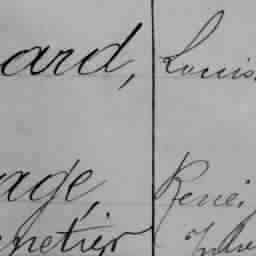 ard, Louis
age, René
netier